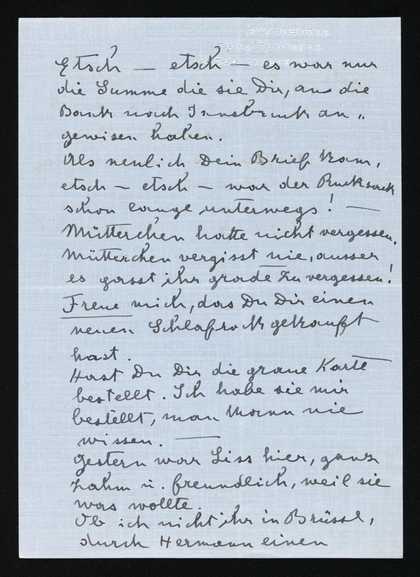 Etsch — etsch — es war nur
die Summe die sie Dir, an die
Bank nach Innsbruck an„
gewisen haben.
Als neulich Dein Brief kam,
etsch — etsch — war der Rucksack
schon lange unterwegs! —
Mütterchen hatte nicht vergessen.
Mütterchen vergisst nie, ausser
es passt ihr grade zu vergessen!
Freue mich, das Du Dir einen
neuen Schlafrock gekauft
hast.
Hast Du Dir die graue Karte
bestellt. Ich habe sie mir
bestellt, man kann nie
wissen. —
Gestern war Liss hier, ganz
zahm u. freundlich, weil sie
was wollte.
Ob ich nicht ihr in Brüssel,
durch Hermann einen